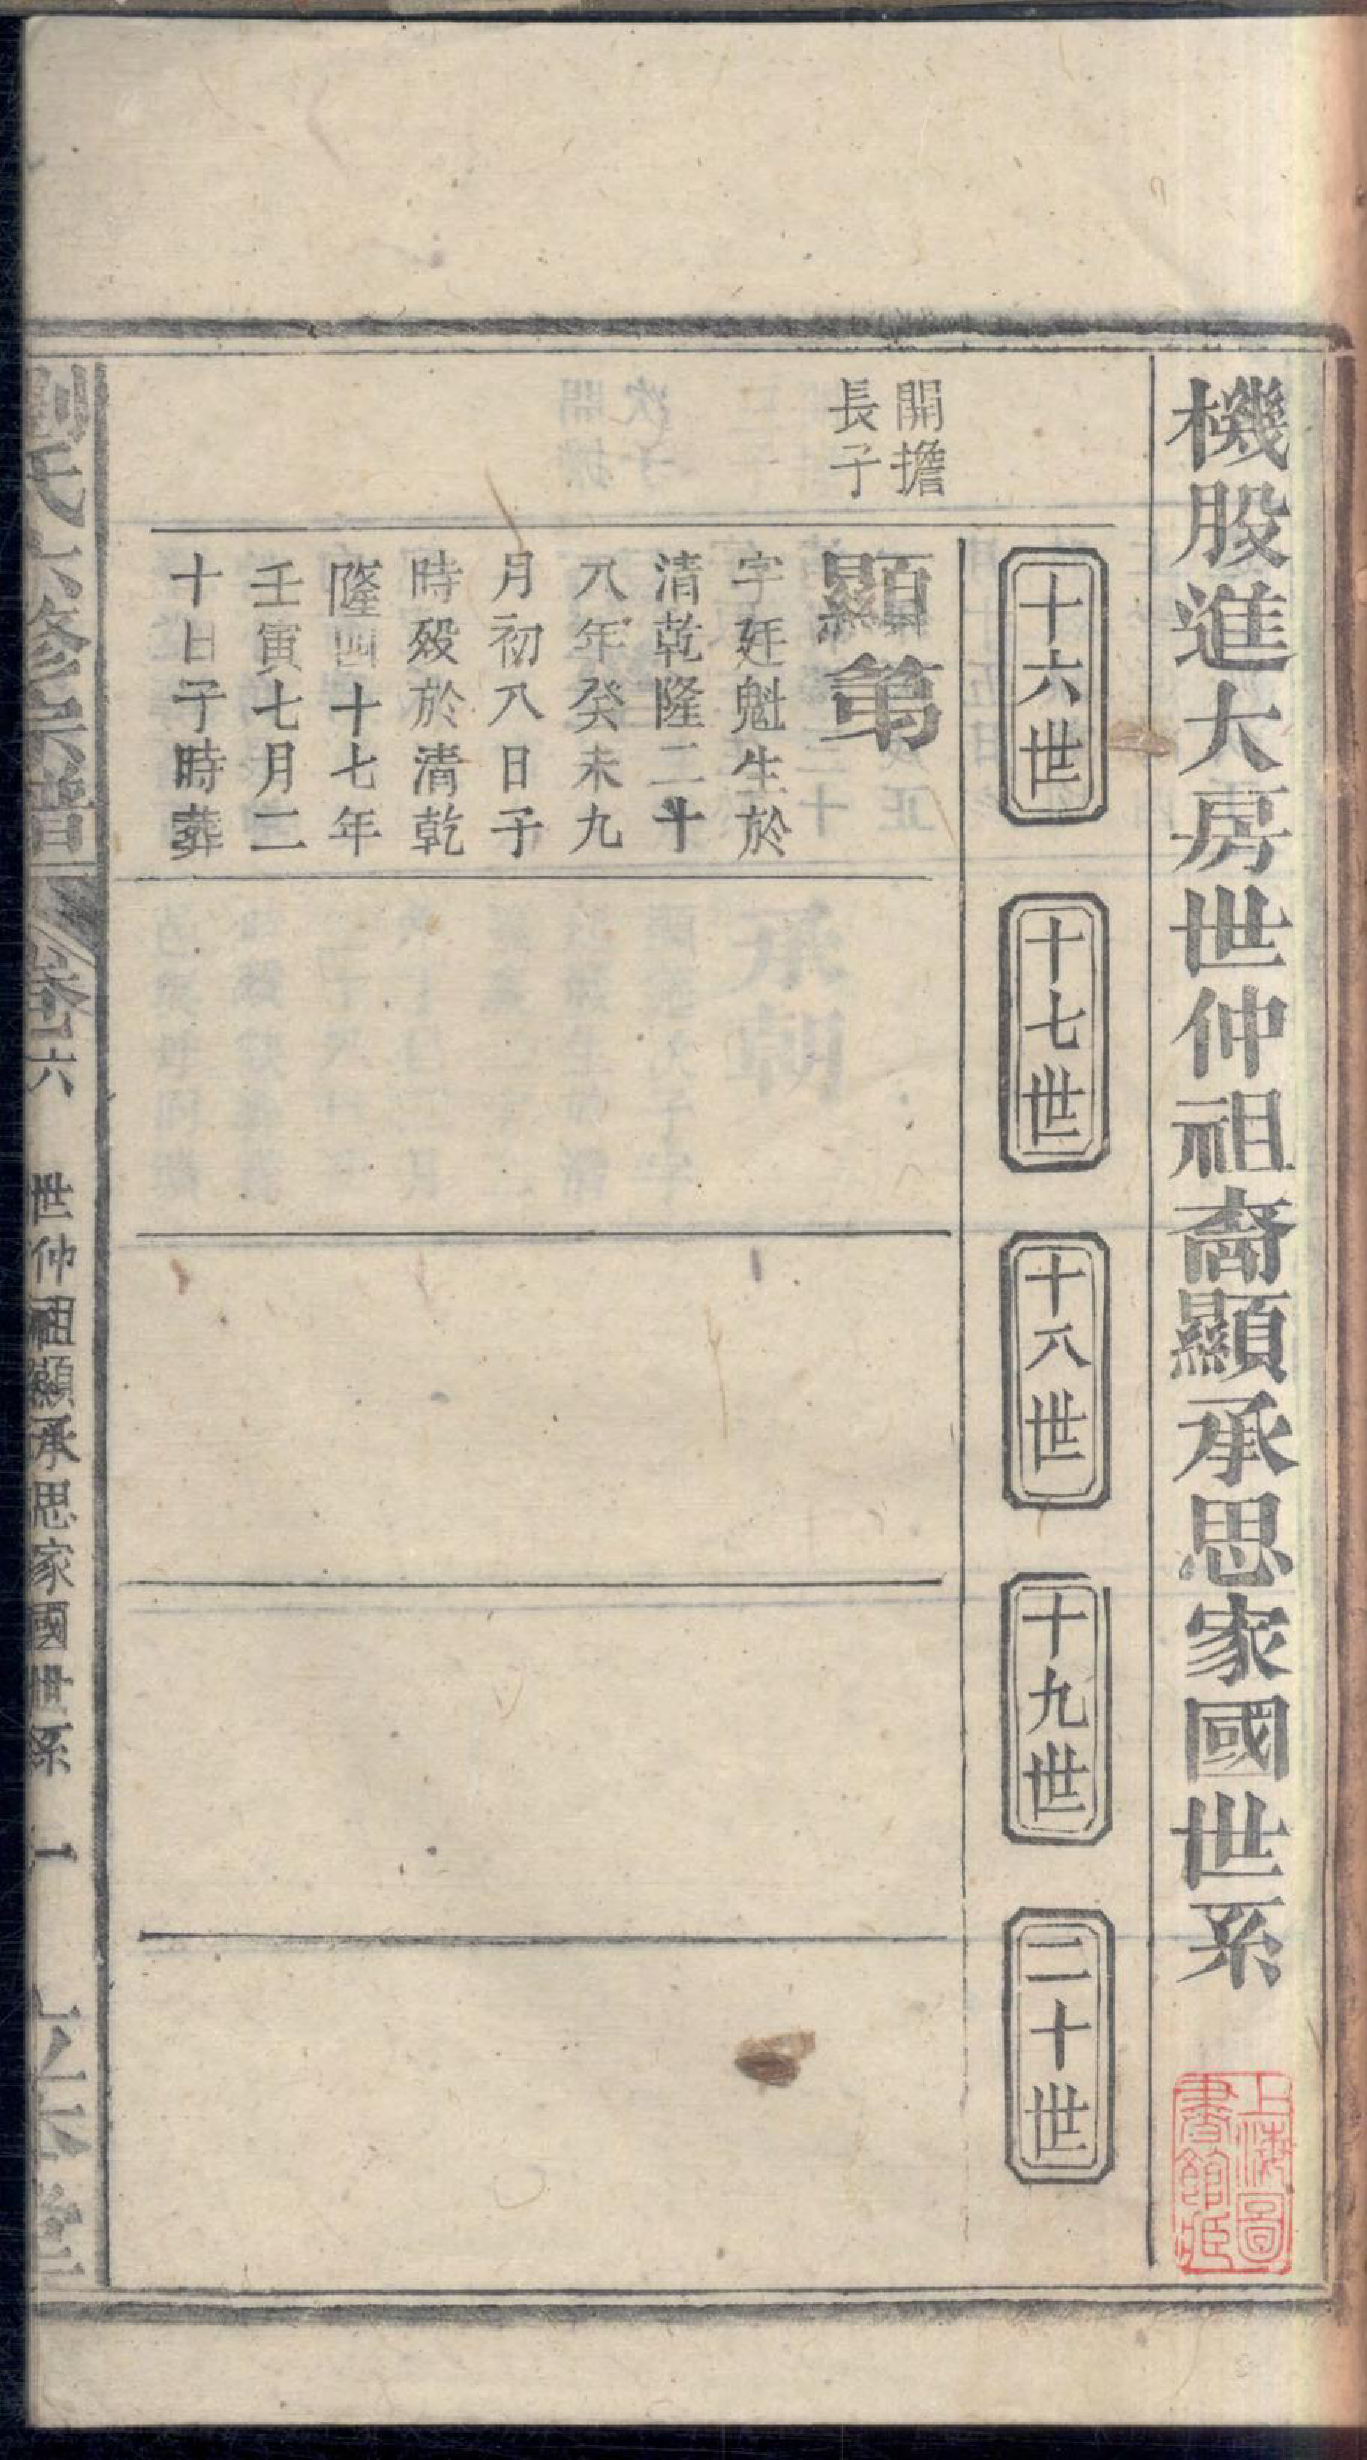 機股進大房世仲祖裔顯承思家國世系
上海圖
書館藏
十六世
十七世
十八世
十九世
二十世
開擔
長子
顯第
字廷魁生於
清乾隆二十
八年癸未九
月初八日子
時殁於清乾
隆四十七年
壬寅七月二
十日子時葬
劉氏六修宗譜
卷六
世仲祖顯承思家國世系
一